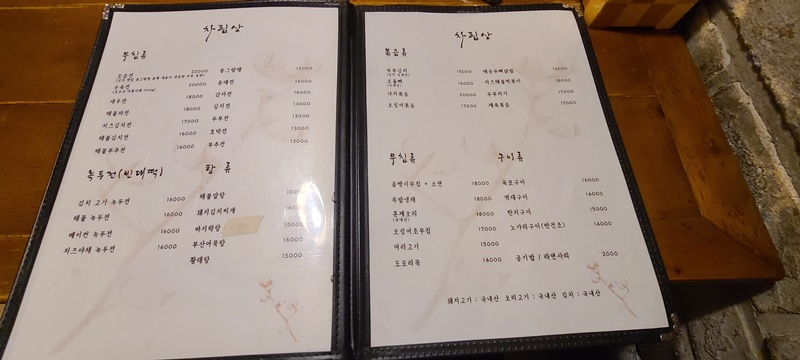 차림상
부침류
모듬전 22000 동그랑땡 16000
우육전 20000 동태전 16000
새우전 18000 감자전 16000
해물파전 18000 김치전 13000
치즈김치전 17000 두부전 13000
해물김치전 16000 호박전 13000
해물부추전 16000 부추전
녹두전(빈대떡) 탕류
김치 고기 녹두전 16000 해물알탕
해물 녹두전 16000 돼지김치찌개
베이컨 녹두전 16000 바지락탕
치즈야채 녹두전 16000 부산어묵탕
황태탕 15000
차림상
볶음류
두부김치 15000 매운무뼈닭발 16000
오돌뼈 16000 치즈매돌떡볶이 18000
낙지볶음 20000 두루치기 17000
오징어볶음 17000 제육볶음 17000
무침류 구이류
골뱅이무침 + 소면 18000 육포구이 16000
족발냉채 18000 먹태구이 16000
훈제오리 18000 한치구이 15000
(국내산)
오징어초무침 17000 노가리구이(반건조) 16000
머리고기 15000
도토리묵 16000 공기밥 / 라면사리 2000
돼지고기 : 국내산 오리고기 : 국내산 김치 : 국내산